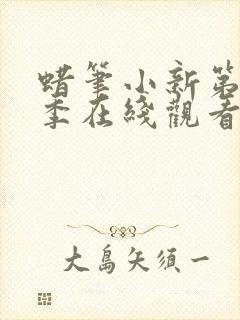 蜡筆小新第
季在綫觀看
大島矢須一